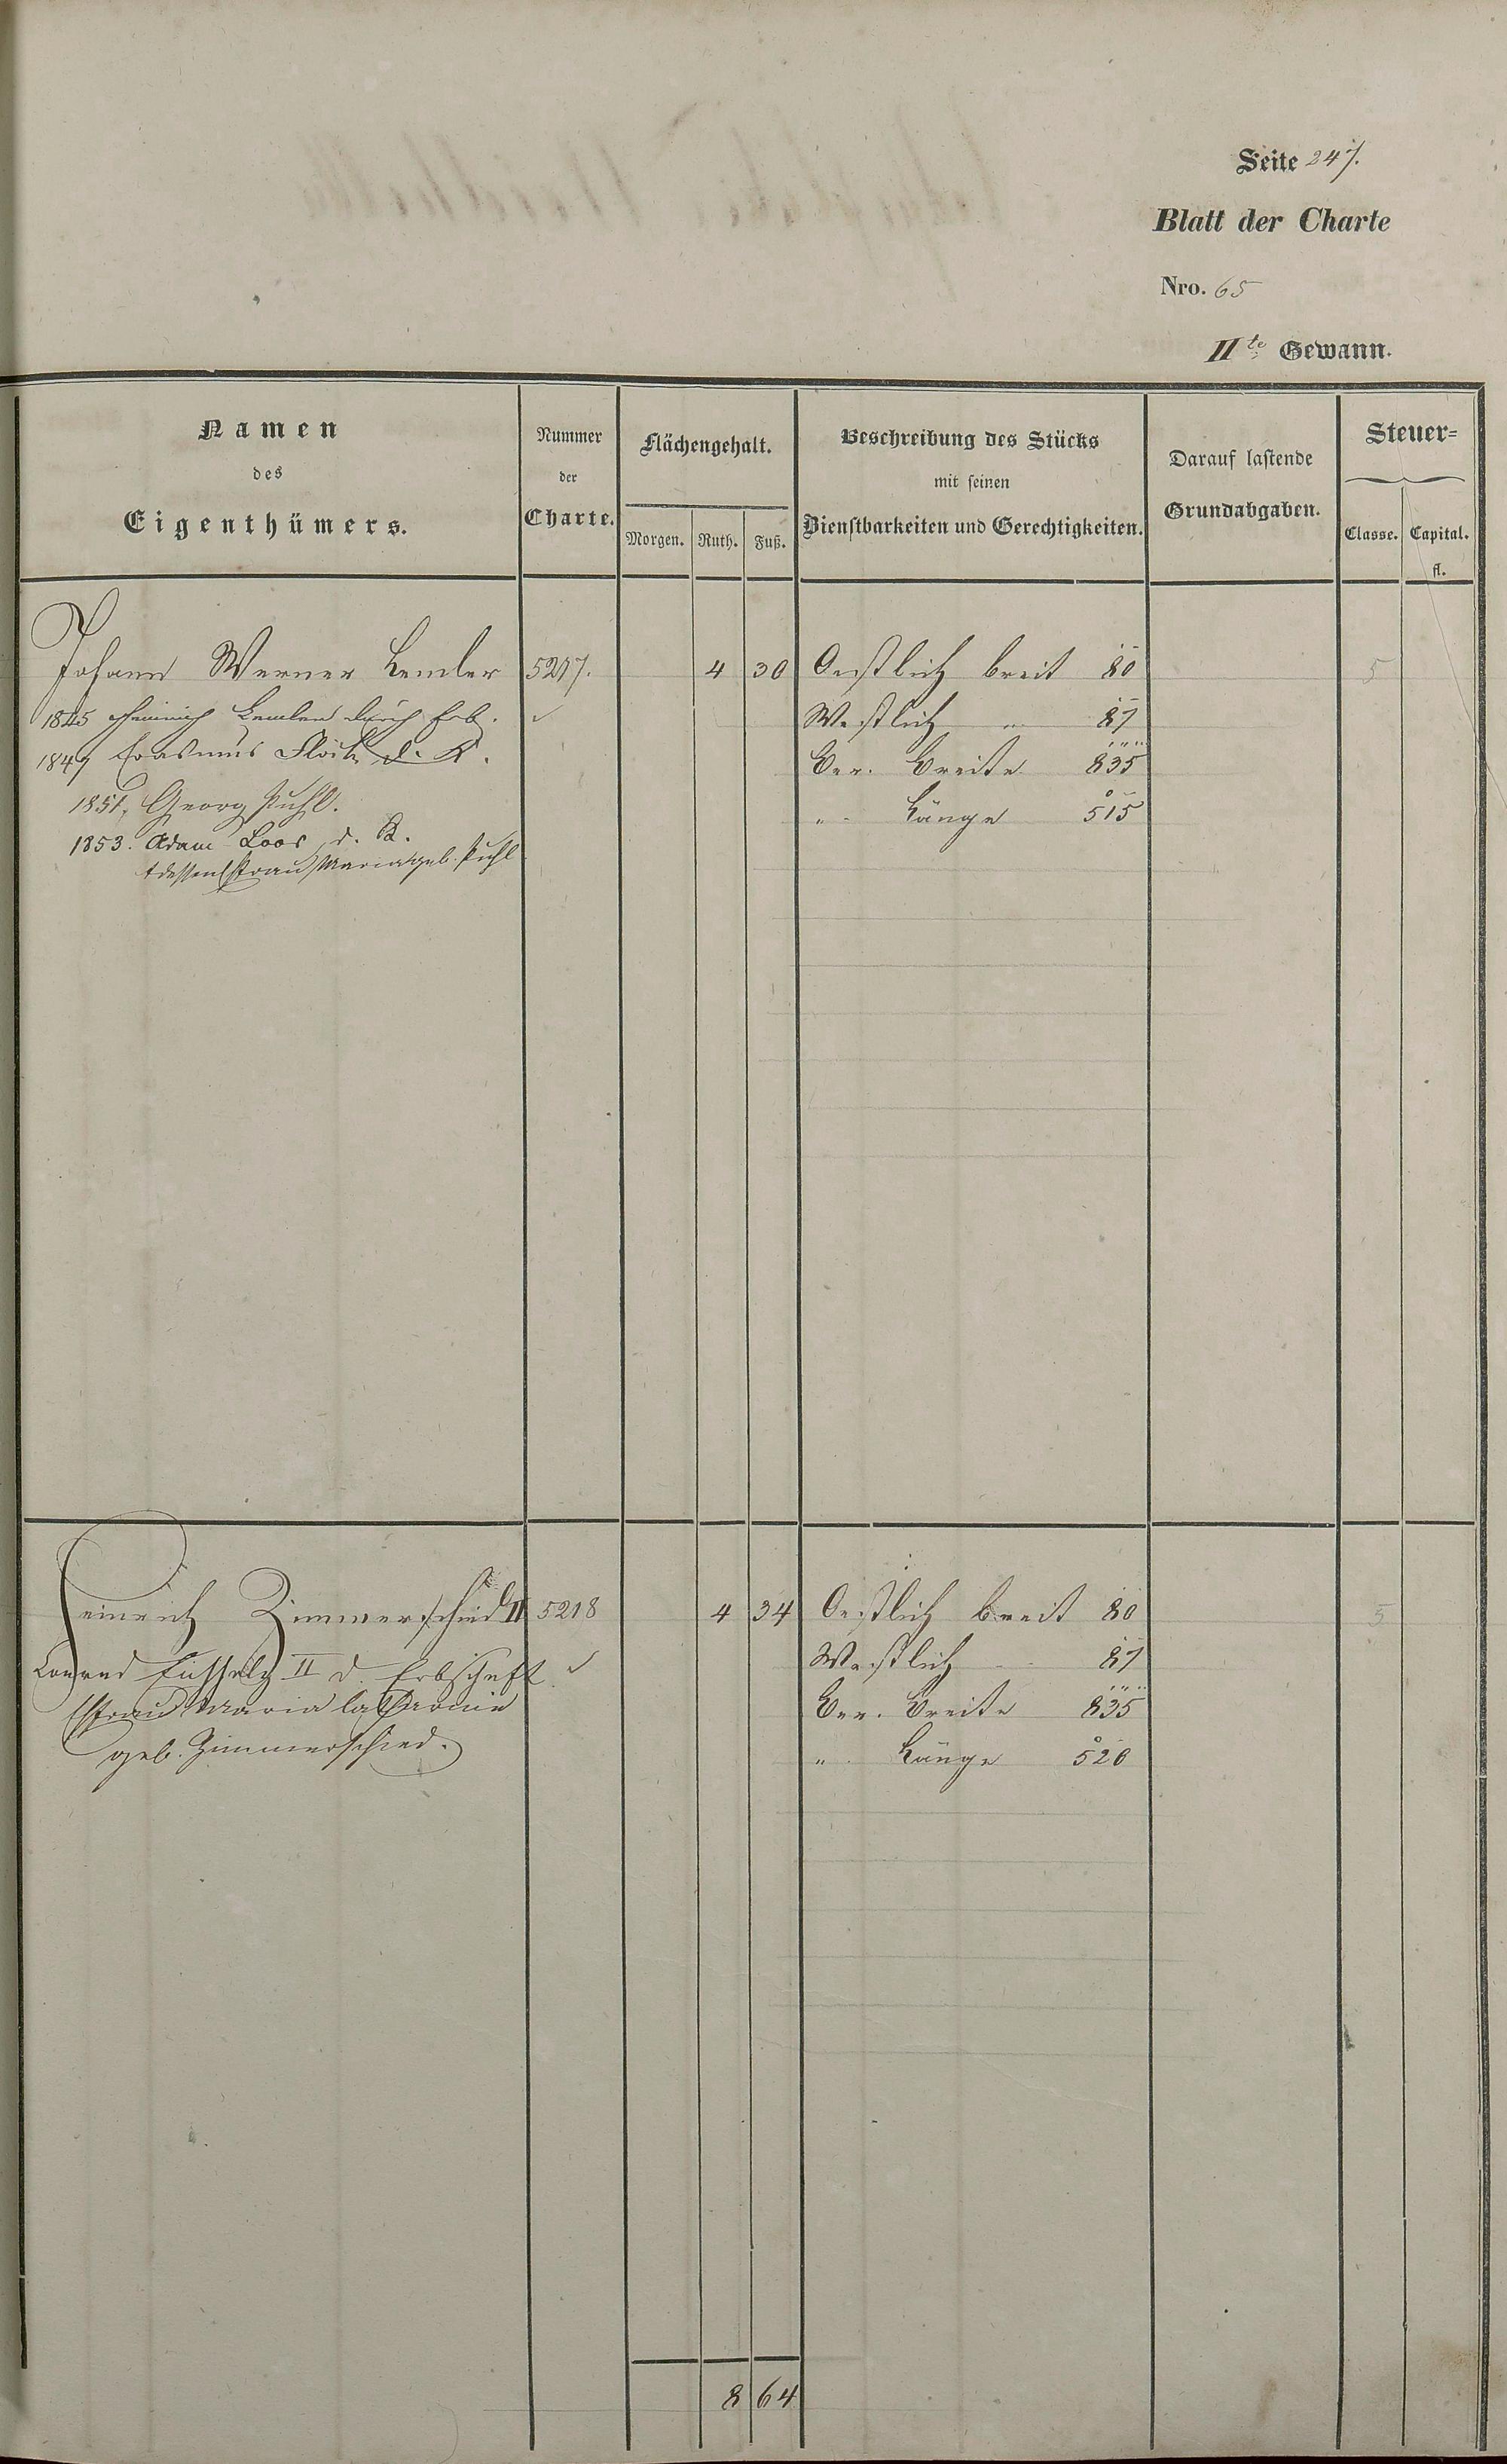 Seite 247.
Blatt der Charte
Nro. 65
IIte Gewann.
Namen
des
Eigenthümers.
Nummer
der
Charte.
Flächengehalt.
Morgen. Ruth. Fuß.
Beschreibung des Stücks
mit seinen
Dienstbarkeiten und Gerechtigkeiten.
Darauf lastende
Grundabgaben.
Steuer=
Classe. Capital.
fl.
Johann Werner Lemler 5217. 4 30 Oestlich breit 80 5
1845 Heinrich Lemler durch Erb. Westlich " 87
1847 Erasmus d. K. Ber. Breite 835
1851, Georg Puhl. " Länge 515
1853. Adam Loos d. K.
& dessen Efrau Maria geb. Puhl
Heinrich Zimmerschied II 5218 4 34 Oestlich breit 80 5
Conrad II d. Erbschaft Westlich 87
Efrau Maria Catharine Ber. Breite 835
geb. Zimmerschied. " Länge 520
8 64